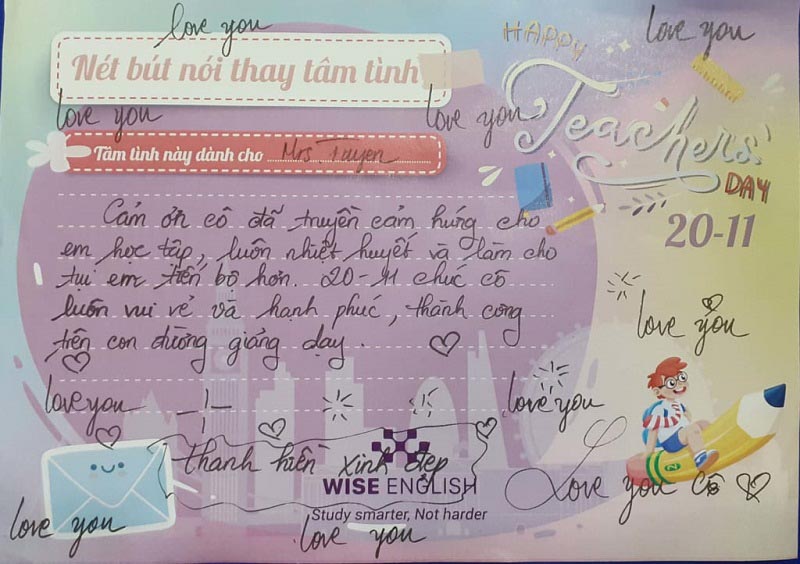 love you
love you
HAPPY
Nét bút nói thay tâm tình
Teachers'
DAY
love you
love you
Tâm tình này dành cho Mrs Tuyen
20-11
Cảm ơn cô đã truyền cảm hứng cho
em học tập, luôn nhiệt huyết và làm cho
tụi em tiến bộ hơn. 20-11 chúc cô
luôn vui vẻ và hạnh phúc, thành công
trên con đường giảng dạy.
love you
love you
love you
thanh hiền xinh đẹp
WISE ENGLISH
Study smarter, Not harder
Love you cô
love you
love you